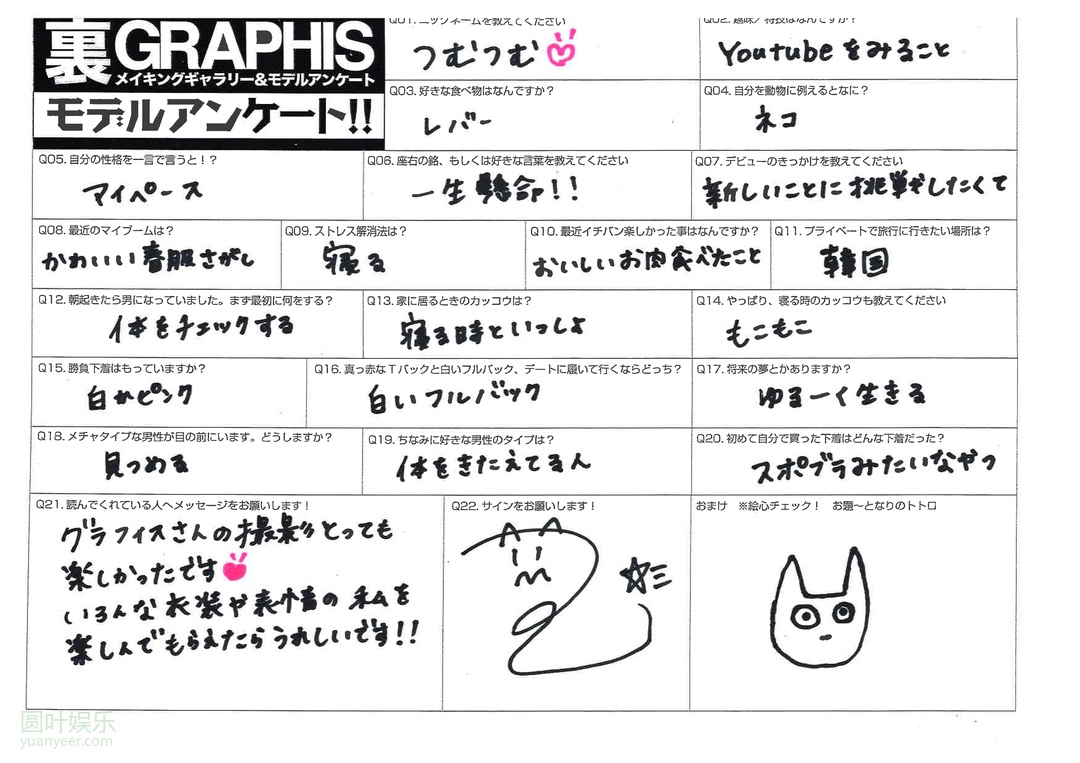 裏GRAPHIS
メイキングギャラリー&モデルアンケート
モデルアンケート!!
Q01.ニックネームを教えてください
つむつむ
Q02.趣味/特技はなんですか?
Youtubeをみること
Q03.好きな食べ物はなんですか?
レバー
Q04.自分を動物に例えるとなに?
ネコ
Q05.自分の性格を一言で言うと!?
マイペース
Q06.座右の銘、もしくは好きな言葉を教えてください
一生懸命!!
Q07.デビューのきっかけを教えてください
新しいことに挑戦したくて
Q08.最近のマイブームは?
かわいい春服さがし
Q09.ストレス解消法は?
寝る
Q10.最近イチバン楽しかった事はなんですか?
おいしいお肉食べたこと
Q11.プライベートで旅行に行きたい場所は?
韓国
Q12.朝起きたら男になっていました。まず最初に何をする?
体をチェックする
Q13.家に居るときのカッコウは?
寝る時といっしょ
Q14.やっぱり、寝る時のカッコウも教えてください
もこもこ
Q15.勝負下着はもっていますか?
白かピンク
Q16.真っ赤なTバックと白いフルバック、デートに履いて行くならどっち?
白いフルバック
Q17.将来の夢とかありますか?
ゆるーく生きる
Q18.メチャタイプな男性が目の前にいます。どうしますか?
見つめる
Q19.ちなみに好きな男性のタイプは?
体をきたえてるん
Q20.初めて自分で買った下着はどんな下着だった?
スポブラみたいなやつ
Q21.読んでくれている人へメッセージをお願いします!
グラフィスさんの撮影とっても
楽しかったです
いろんな衣装や表情の私を
楽しんでもらえたらうれしいです!!
Q22.サインをお願いします!
おまけ ※絵心チェック! お題~となりのトトロ
圆叶娱乐
yuanyeer.com